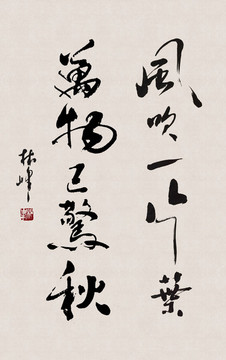 風吹一片葉
萬物已驚秋
林峰